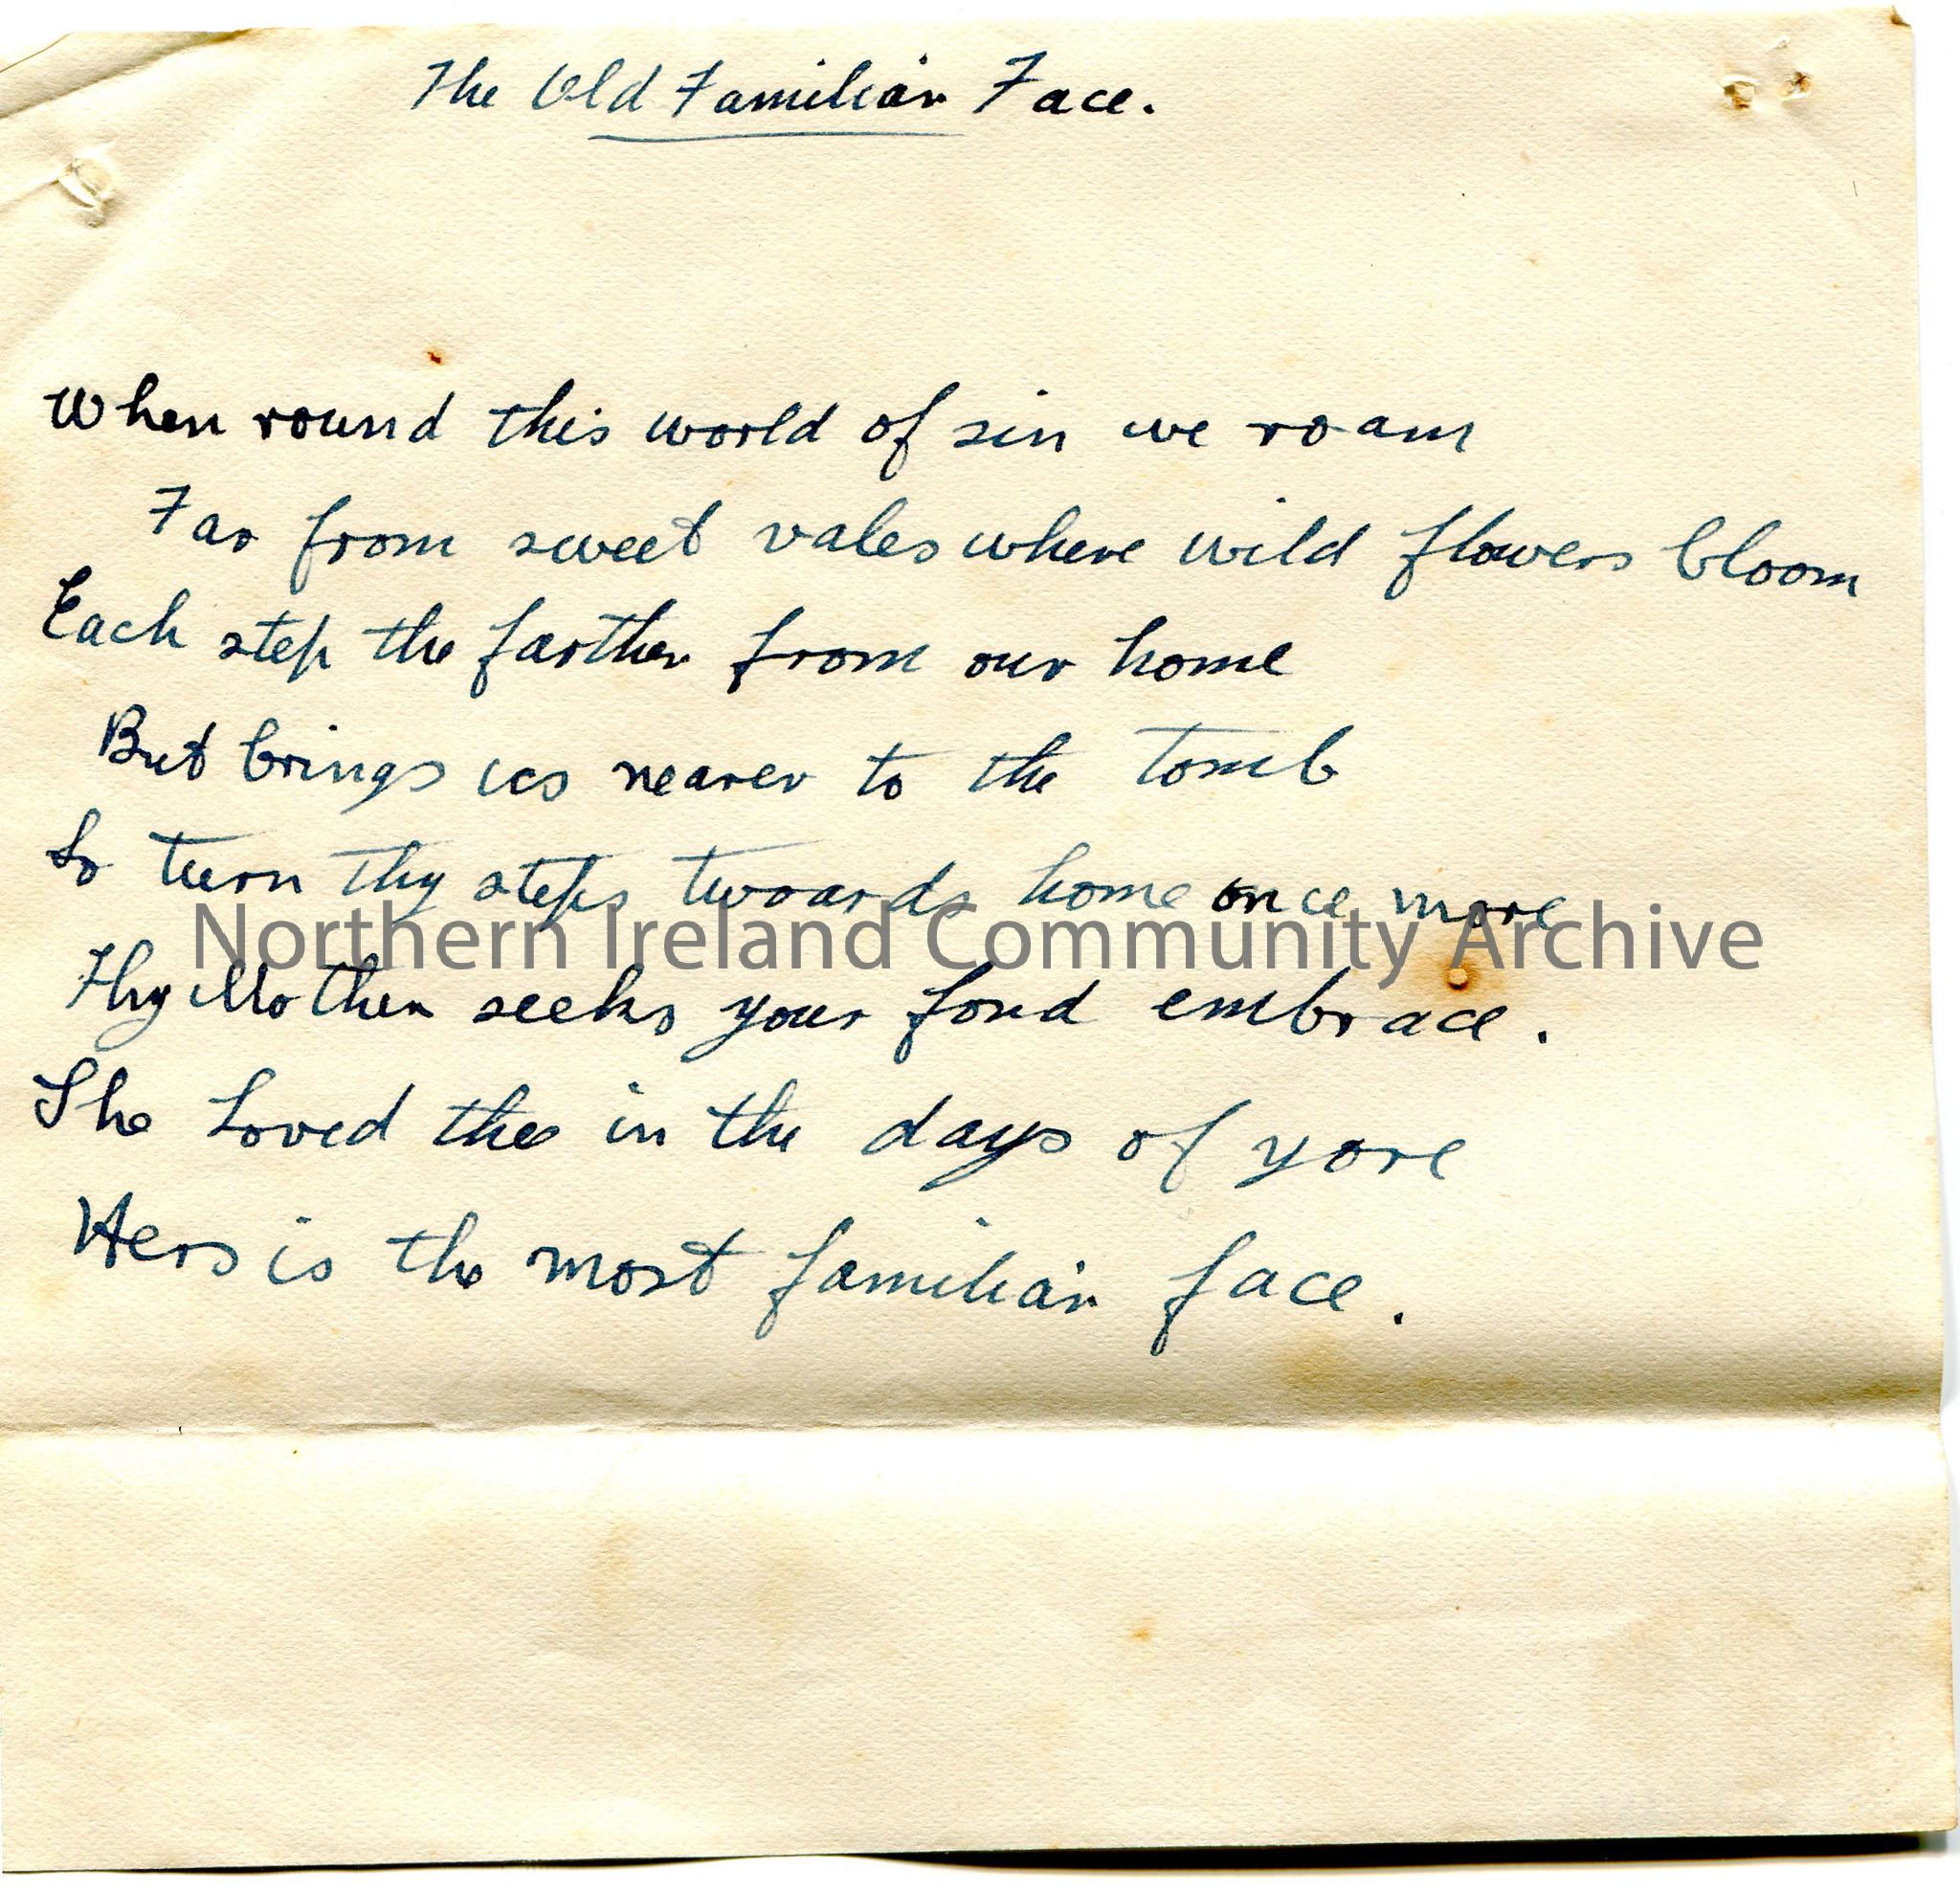 The Old Familiar Face.
When round this world of sin we roam
Far from sweet vales where wild flowers bloom
Each step the farther from our home
But brings us nearer to the tomb
So turn thy steps twoards home once more
Northern Ireland Community Archive
Thy Mother seeks your fond embrace.
She Loved the in the days of yore
Hers is the most familiar face.